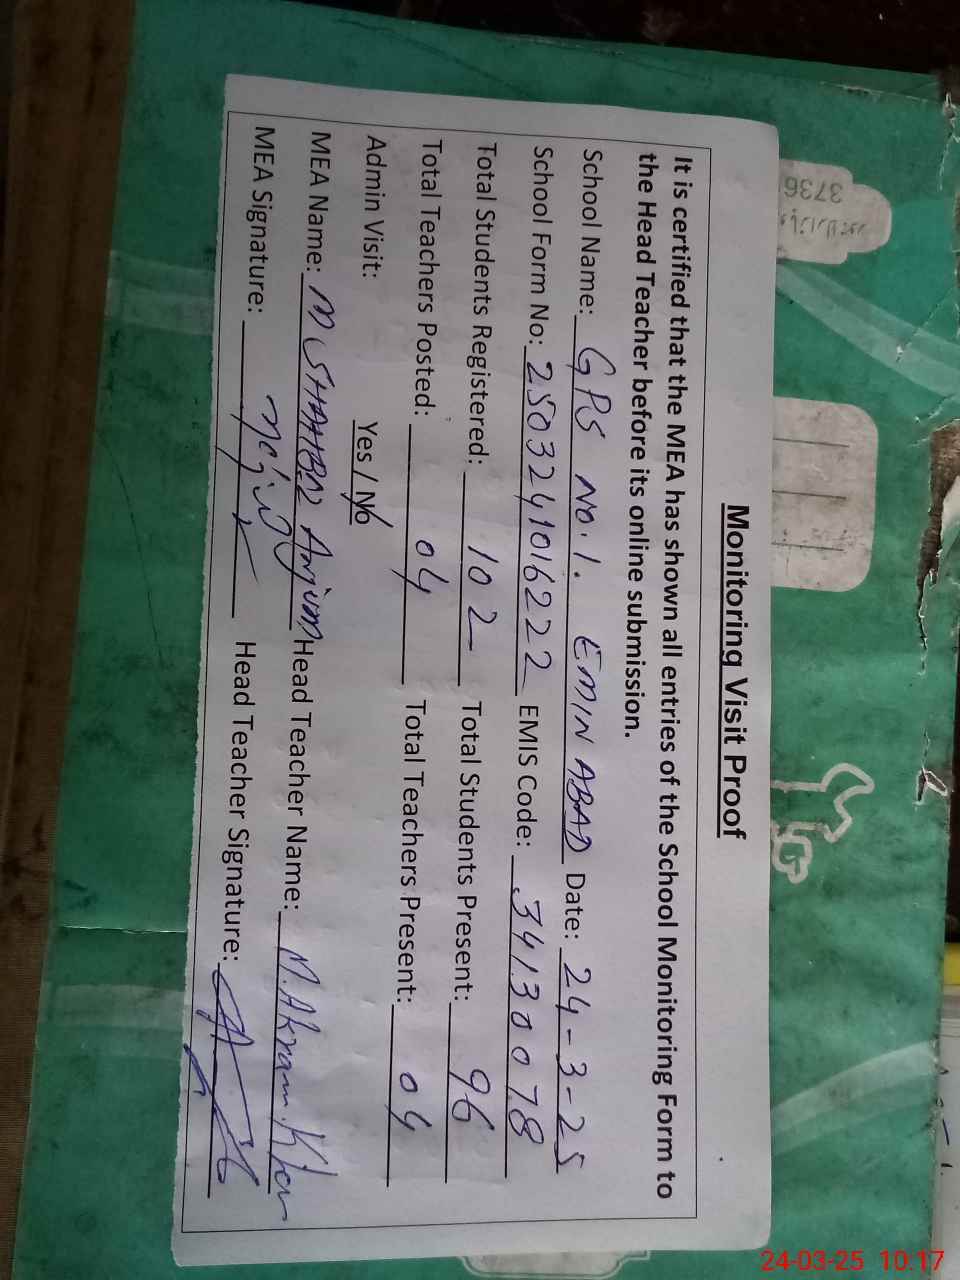 Monitoring Visit Proof
It is certified that the MEA has shown all entries of the School Monitoring Form to
the Head Teacher before its online submission.
School Name: GPS No.1. EMIN ABAD Date: 24-3-25
School Form No: 2503241016222 EMIS Code: 34130078
Total Students Registered: 102 Total Students Present: 96
Total Teachers Posted: 04 Total Teachers Present: 04
Admin Visit: Yes / No
MEA Name: M SHAHBAZ Anjum Head Teacher Name: M. Akram. Khan
MEA Signature: Head Teacher Signature:
3736
24-03-25 10:17